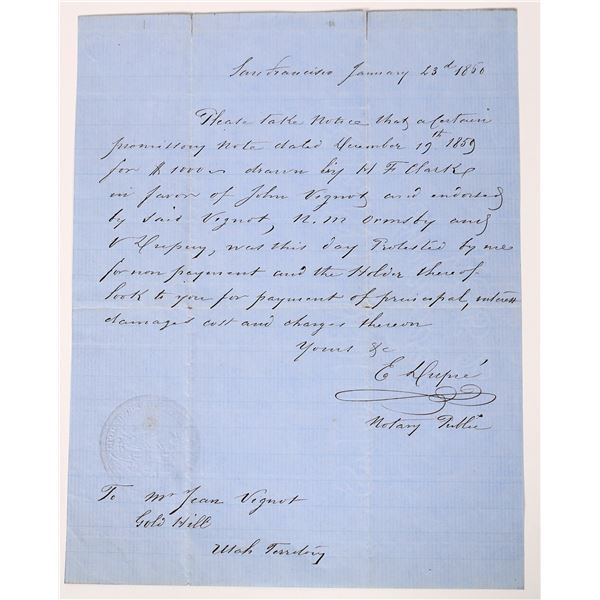 San Francisco January 23d 1860
Please take Notice that a Certain
promissory Note dated December 19th 1859
for $1000 drawn by H F Clarke
in favor of John Vignot and endorsed
by said Vignot, N.M Ormsby and
V Dupuy, was this day Protested by me
for non payment and the Holder thereof
look to you for payment of principal, interest
damages cost and charges thereon
Yours &c
E Dupré
Notary Public
To Mr Jean Vignot
Gold Hill
Utah Territory